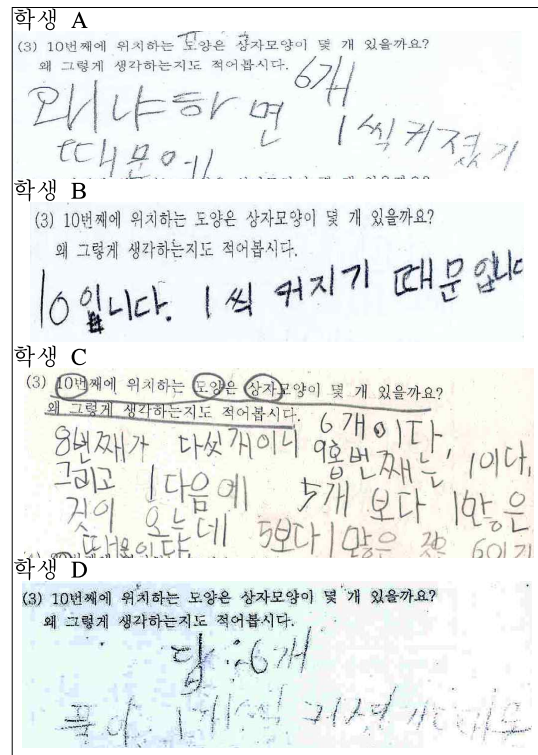 학생 A
(3) 10번째에 위치하는 도양은 상자모양이 몇 개 있을까요?
왜 그렇게 생각하는지도 적어봅시다.
6개
왜냐하면 1씩 커졌기
때문에
학생 B
(3) 10번째에 위치하는 도양은 상자모양이 몇 개 있을까요?
왜 그렇게 생각하는지도 적어봅시다.
10입니다. 1씩 커지기 때문입니다
학생 C
(3) 10번째에 위치하는 도양은 상자모양이 몇 개 있을까요?
왜 그렇게 생각하는지도 적어봅시다.
6개이다,
8번째가 다섯개이니 9번째는, 1이다,
그리고 1다음에 5개 보다 1많은
것이 오는데 5보다 1많은 것은 6이기
때문이다
학생 D
(3) 10번째에 위치하는 도양은 상자모양이 몇 개 있을까요?
왜 그렇게 생각하는지도 적어봅시다.
답:6개
1개씩